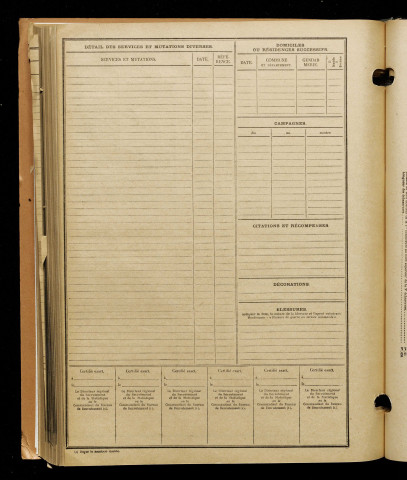 DÉTAIL DES SERVICES ET MUTATIONS DIVERSES.
SERVICES ET MUTATIONS.
DATE.
DOMICILES
OU RÉSIDENCES SUCCESSIFS.
DATE.
COMMUNE
ET DÉPARTEMENT.
CAMPAGNES.
du
au
CITATIONS ET RÉCOMPENSES
DÉCORATIONS.
BLESSURES.
Certifié exact,
Certifié exact,
Certifié exact,
Certifié exact,
Certifié exact,
Certifié exact,
A
A
A
A
A
A
Le Directeur régional
du Recrutement
et de la Statistique
ou le
Commandant du Bureau
de Recrutement (1).
Le Directeur régional
du Recrutement
et de la Statistique
ou le
Commandant du Bureau
de Recrutement (1).
Le Directeur régional
du Recrutement
et de la Statistique
ou le
Commandant du Bureau
de Recrutement (1).
Le Directeur régional
du Recrutement
et de la Statistique
ou le
Commandant du Bureau
de Recrutement (1).
Le Directeur régional
du Recrutement
et de la Statistique
ou le
Commandant du Bureau
de Recrutement (1).
Le Directeur régional
du Recrutement
et de la Statistique
ou le
Commandant du Bureau
de Recrutement (1).
(1) Rayer la mention inutile.